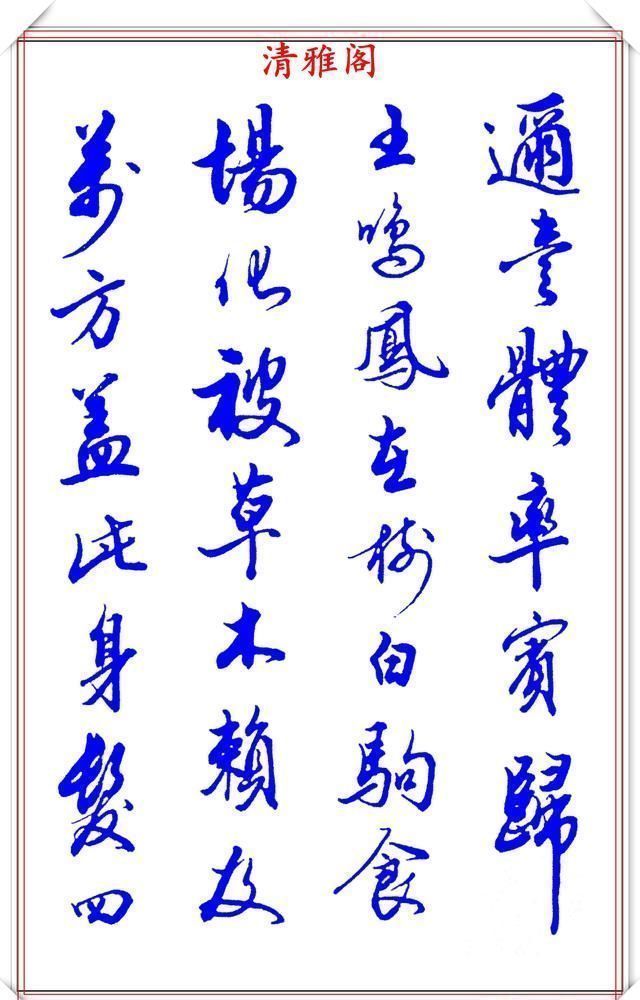 清雅阁
邇壹體率賓歸
王鳴鳳在樹白駒食
場化被草木賴及
萬方盖此身髮四